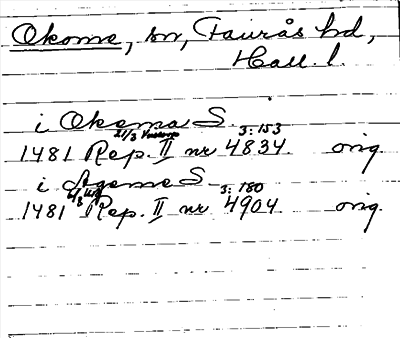 Okome, sn, Faurås hd,
Hall. l.
i Okema S.
21/3 3: 153
1481 Rep. II nr 4834. orig.
i Ageme S.
3: 180
1481 Rep. II nr 4904. orig.